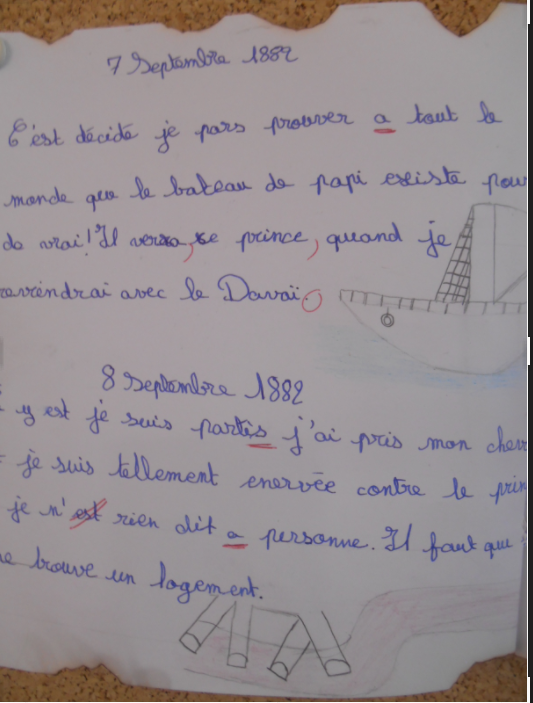 7 Septembre 1882
C'est décidé je pars prouver a tout le
monde que le bateau de papi existe pour
de vrai! Il verra, ce prince, quand je
reviendrai avec le Davaï.
8 Septembre 1882
y est je suis partis j'ai pris mon
je suis tellement enervée contre le
je n'est rien dit a personne. Il faut que
trouve un logement.